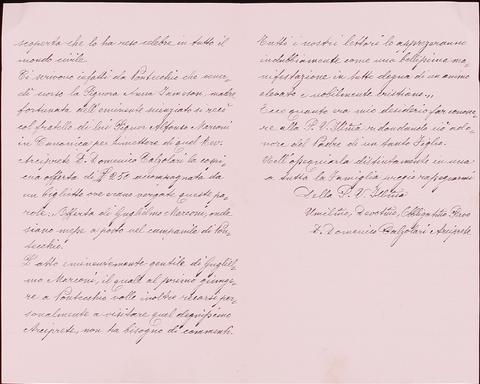 scoperta che lo ha reso celebre in tutto il
mondo civile.
Ci scrivono infatti da Pontecchio che vener-
dì scorso la Signora Anna Jameson, madre
fortunata dell'eminente scienziato si recò
col fratello di lui Signor Alfonso Marconi
in Canonica per rimettere a quel Rev.
Arciprete D. Domenico Calzolari la cospi-
cua offerta di £ 250 accompagnata da
un biglietto ove erano vergate queste pa-
role: "Offerta di Guglielmo Marconi, onde
siano messe a posto nel campanile di Pon-
tecchio".
L'atto eminentemente gentile di Gugliel-
mo Marconi, il quale al primo giunge-
re a Pontecchio volle inoltre recarsi per-
sonalmente a visitare quel degnissimo
Arciprete, non ha bisogno di commenti.
Tutti i nostri lettori le apprezzeranno
indubbiamente come una bellissima ma-
nifestazione in tutto degna di un animo
elevato e nobilmente cristiano".
Ecco quanto era mio desiderio far conosce-
re alla S. V. Ill.ma ridondando ciò ad o-
nore del Padre di un tanto Figlio.
Nell'ossequiarla distintamente in una
a tutta la Famiglia pregio raffermarmi
Della S. V. Ill.ma
Umilissimo, Devotissimo, Obbligatissimo Servo
D. Domenico Calzolari Arciprete